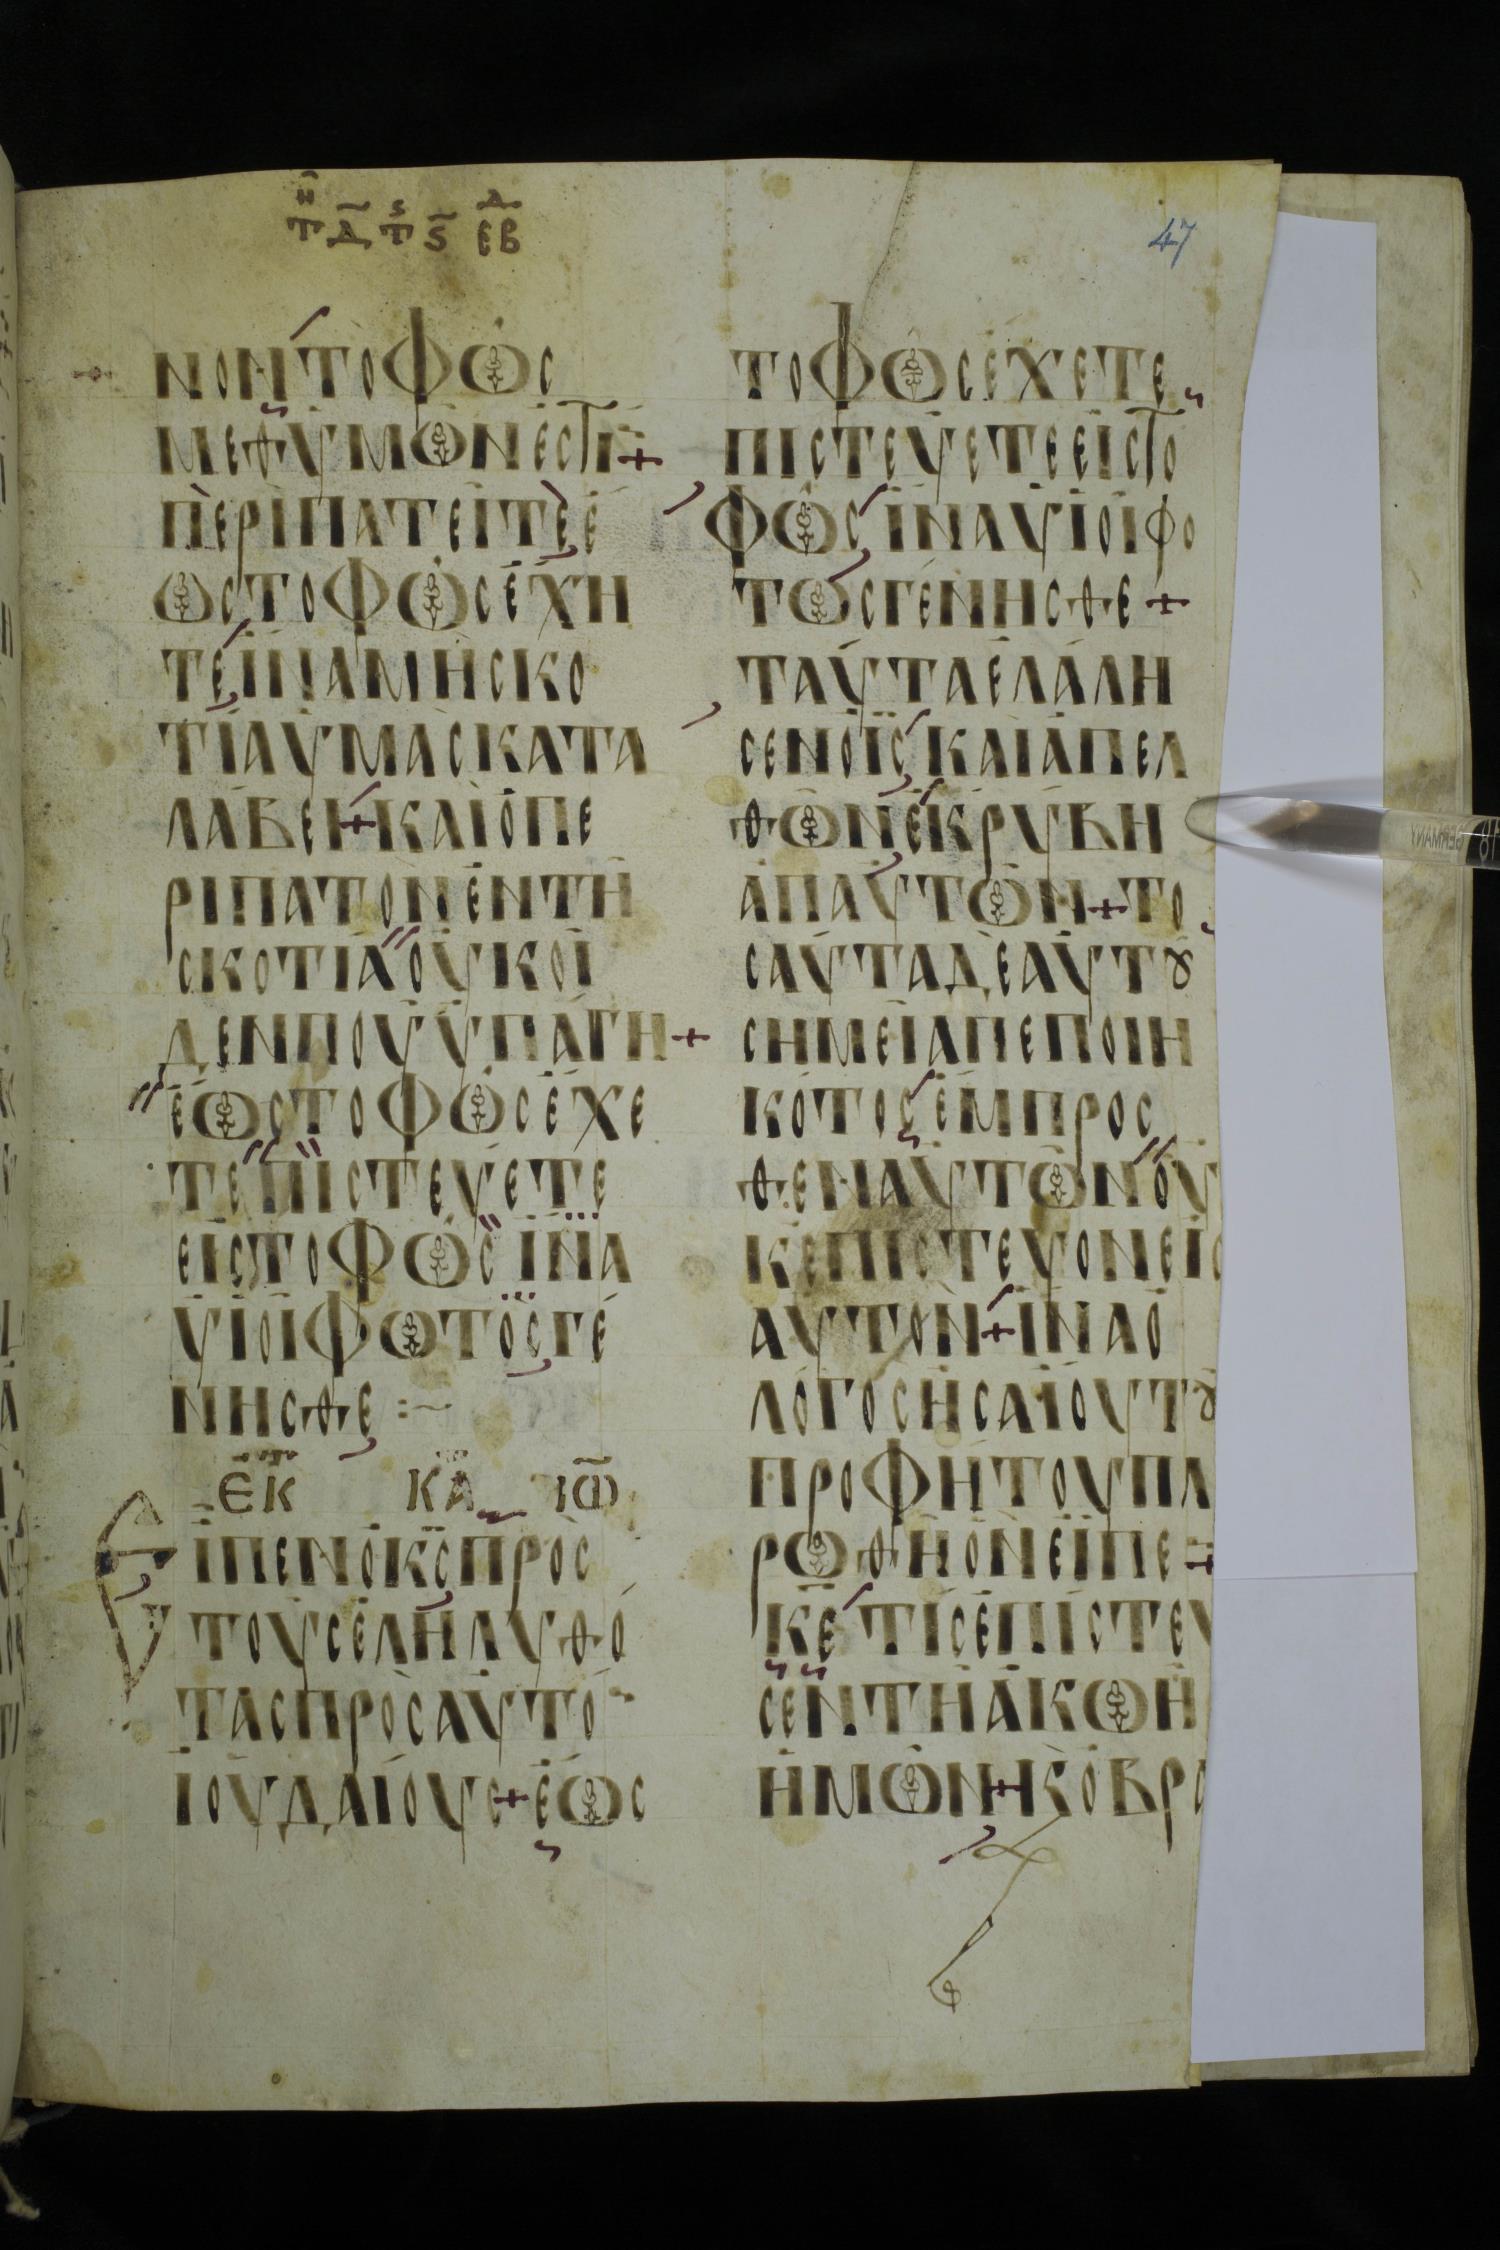 47
ΝΟΝΤΟΦΩC
ΜΕΘΥΜΩΝΕCΤΙ+
ΠΕΡΙΠΑΤΕΙΤΕΕ
ΩCΤΟΦΩCΕΧΗ
ΤΕΙΝΑΜΗCΚΟ
ΤΙΑΥΜΑCΚΑΤΑ
ΛΑΒΕΙ+ΚΑΙΟΠΕ
ΡΙΠΑΤΟΝΕΝΤΗ
CΚΟΤΙΑΟΥΚΟΙ
ΔΕΝΠΟΥΥΠΑΓΗ+
ΕΩCΤΟΦΩCΕΧΕ
ΤΕΠΙCΤΕΥΕΤΕ
ΕΙCΤΟΦΩCΙΝΑ
ΥΙΟΙΦΩΤΟCΓΕ
ΝΗCΘΕ:~
ΕΚ ΚΑ ΙΩ
ΕΙΠΕΝΟΚCΠΡΟC
ΤΟΥCΕΛΗΛΥΘΟ
ΤΑCΠΡΟCΑΥΤΟ
ΙΟΥΔΑΙΟΥC+ΕΩC
ΤΟΦΩCΕΧΕΤΕ
ΠΙCΤΕΥΕΤΕΕΙCΤΟ
ΦΩCΙΝΑΥΙΟΙΦΟ
ΤΩCΓΕΝΗCΘΕ+
ΤΑΥΤΑΕΛΑΛΗ
CΕΝΟΙCΚΑΙΑΠΕΛ
ΘΩΝΕΚΡΥΒΗ
ΑΠΑΥΤΩΝ+ΤΟ
CΑΥΤΑΔΕΑΥΤȢ
CΗΜΕΙΑΠΕΠΟΙΗ
ΚΟΤΟCΕΜΠΡΟC
ΘΕΝΑΥΤΩΝΟΥ
ΚΕΠΙCΤΕΥΟΝΕΙC
ΑΥΤΟΝ+ΙΝΑΟ
ΛΟΓΟCΗCΑΙΟΥΤȢ
ΠΡΟΦΗΤΟΥΠΛ
ΡΩΘΗΟΝΕΙΠΕ+
ΚΕΤΙCΕΠΙCΤΕΥ
CΕΝΤΗΑΚΩΗ
ΗΜΩΝ+ΚΟΒΡΑ